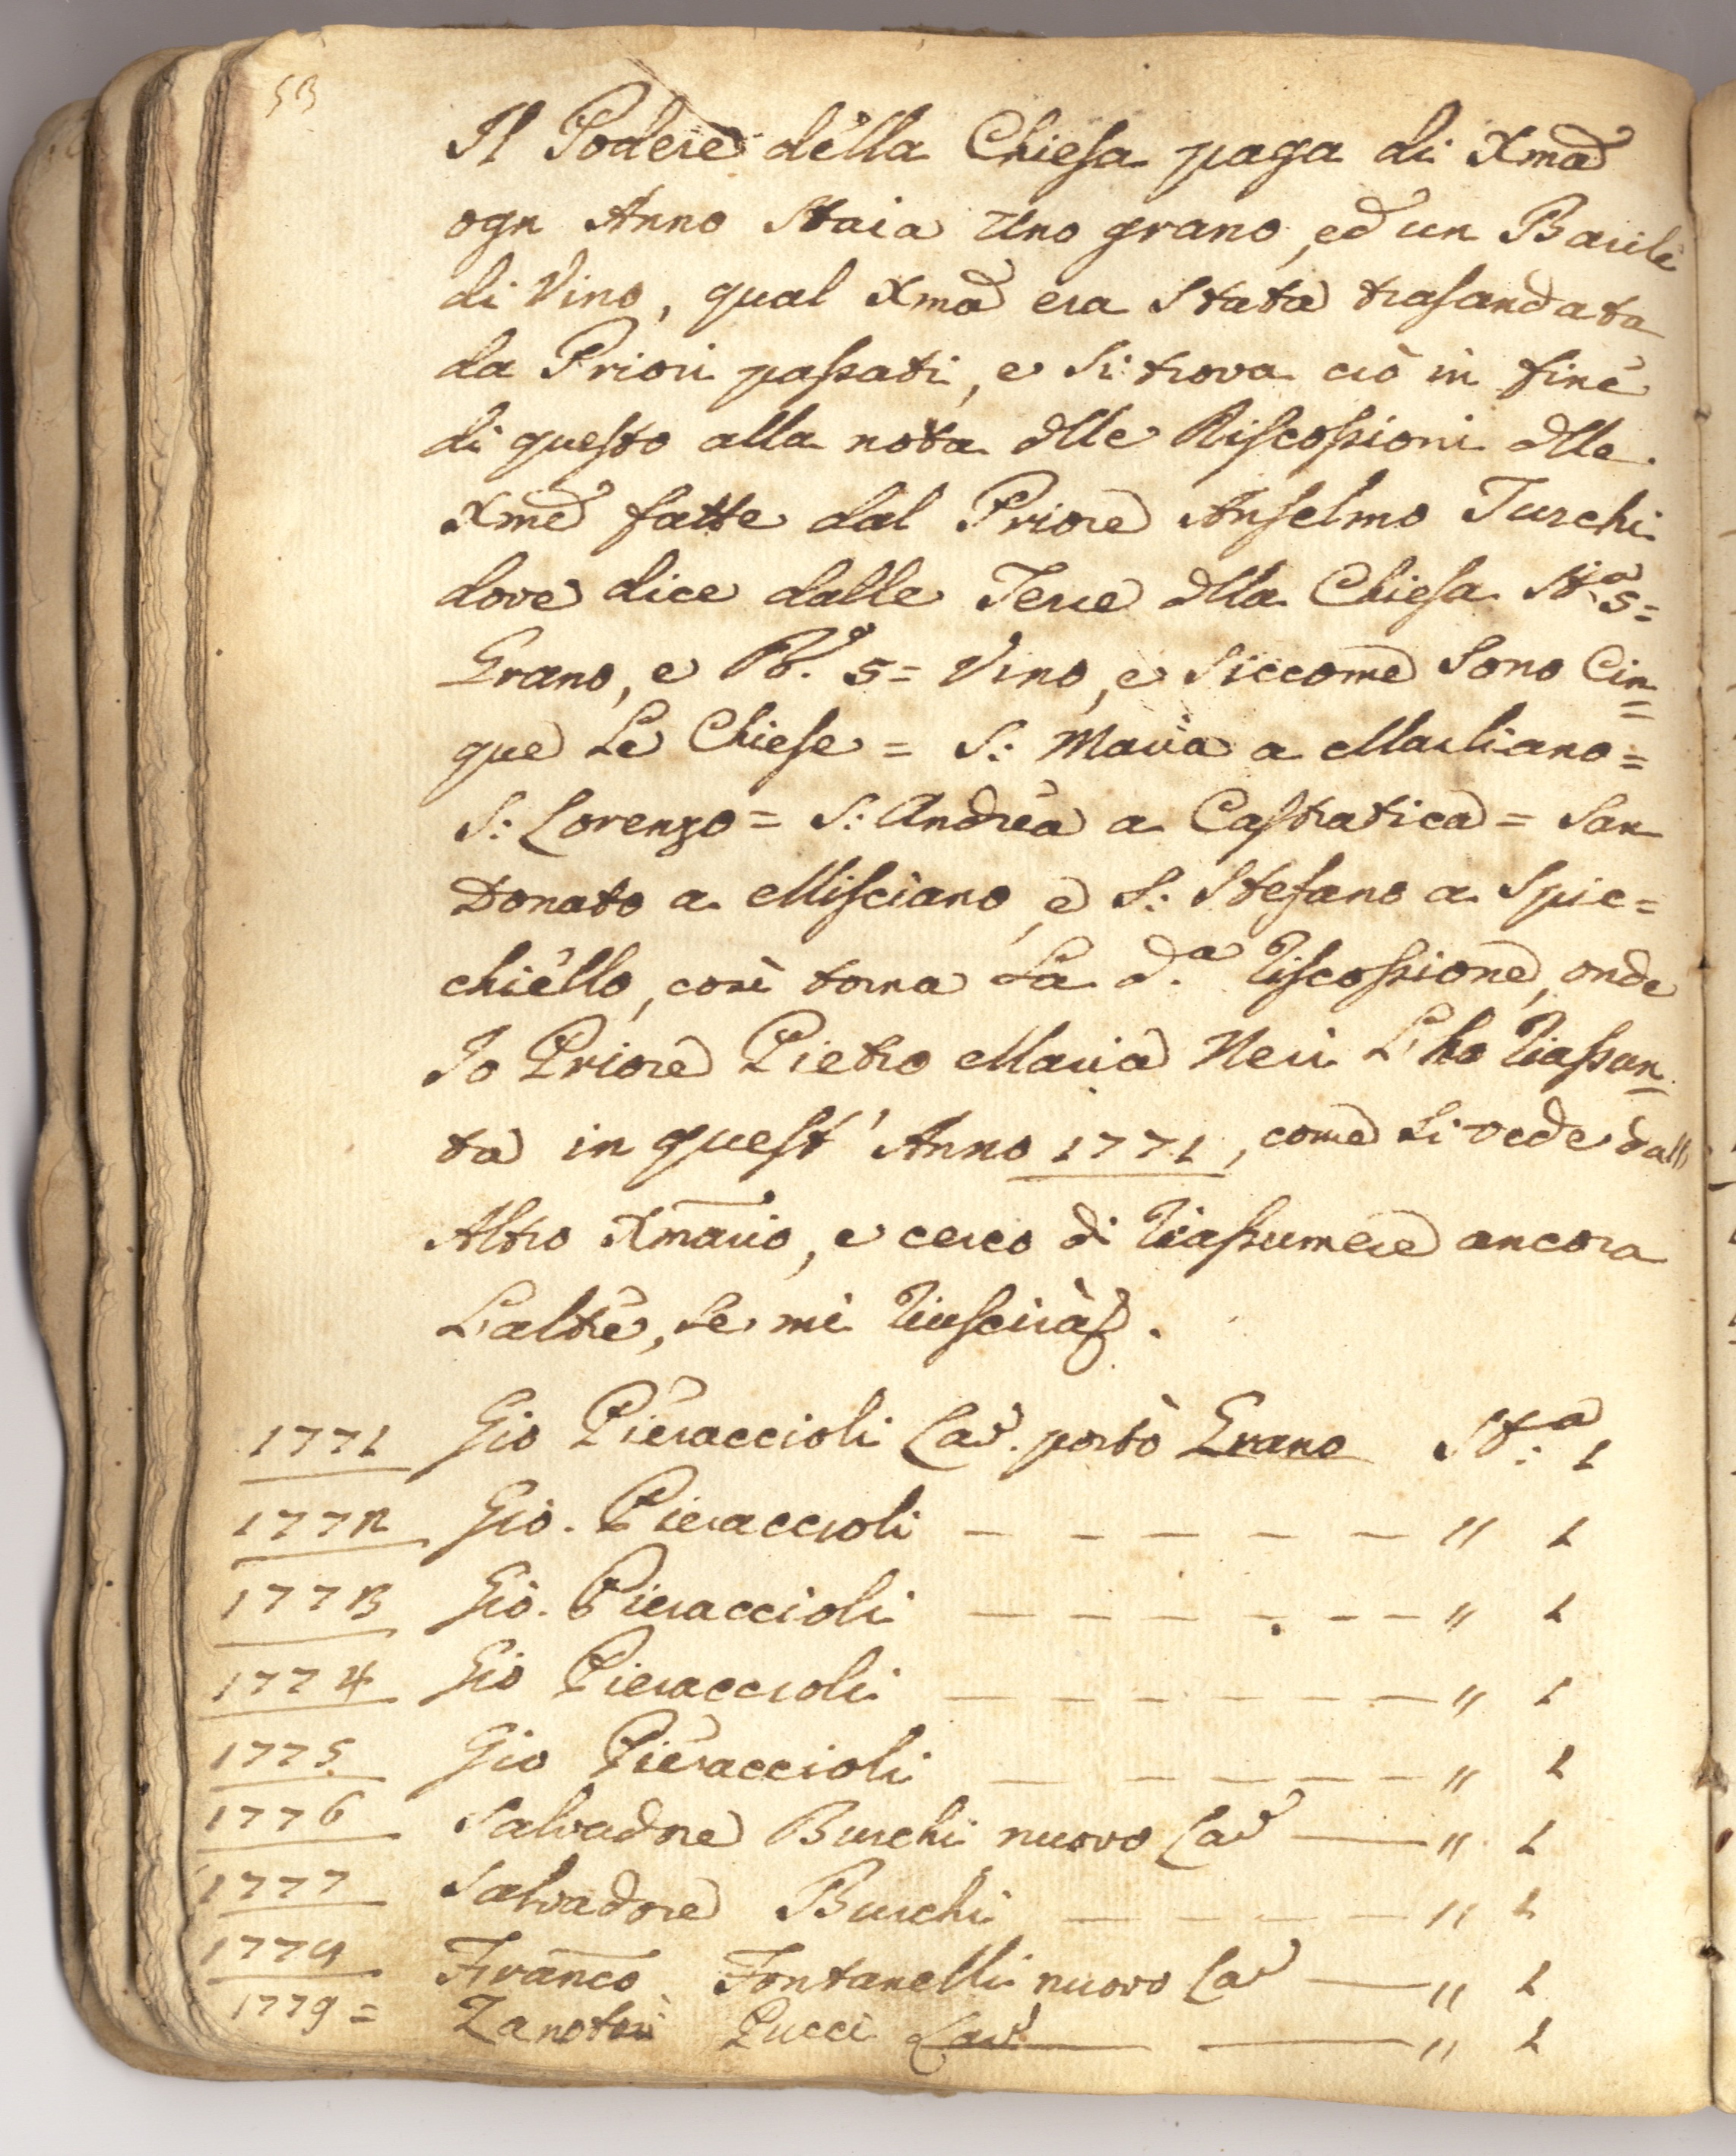 53
Il Podere della Chiesa paga di Xma
ogn Anno Staia Uno grano, ed un Barile
di Vino, qual Xma era Stata trasandata
da Priori passati, e si trova ciò in fine
di questo alla nota dlle Riscossioni dlle
Xme fatte dal Priore Anselmo Turchi
dove dice dalle Terre dlla Chiesa St.a 5=
Grano, e Bb. 5= Vino, e siccome sono Cin=
que Le Chiese = S: Maria a Marliano =
S: Lorenzo = S: Andrea a Castratica = San
Donato a Misciano, e S: Stefano a Spic=
chiello, così torna La d.a Riscossione, onde
Io Priore Pietro Maria Neri L'ho Riassun=
ta in quest' Anno 1771, come si vede dall
Altro Xmario, e cerco di Riassumere ancora
L'altre, se mi Riuscirà.
1771 Gio Pieraccioli Lad. portò Grano St:a 1
1772 Gio. Pieraccioli — — — — — — " 1
1773 Gio. Pieraccioli — — — — — — " 1
1774 Gio Pieraccioli — — — — — — " 1
1775 Gio Pieraccioli — — — — — — " 1
1776 Salvadore Burchi nuovo Lad — " 1
1777 Salvadore Burchi — — — — — " 1
1778 Franco Fontanelli nuovo Lad — " 1
1779= Zanobi Pucci Lad. — — " 1